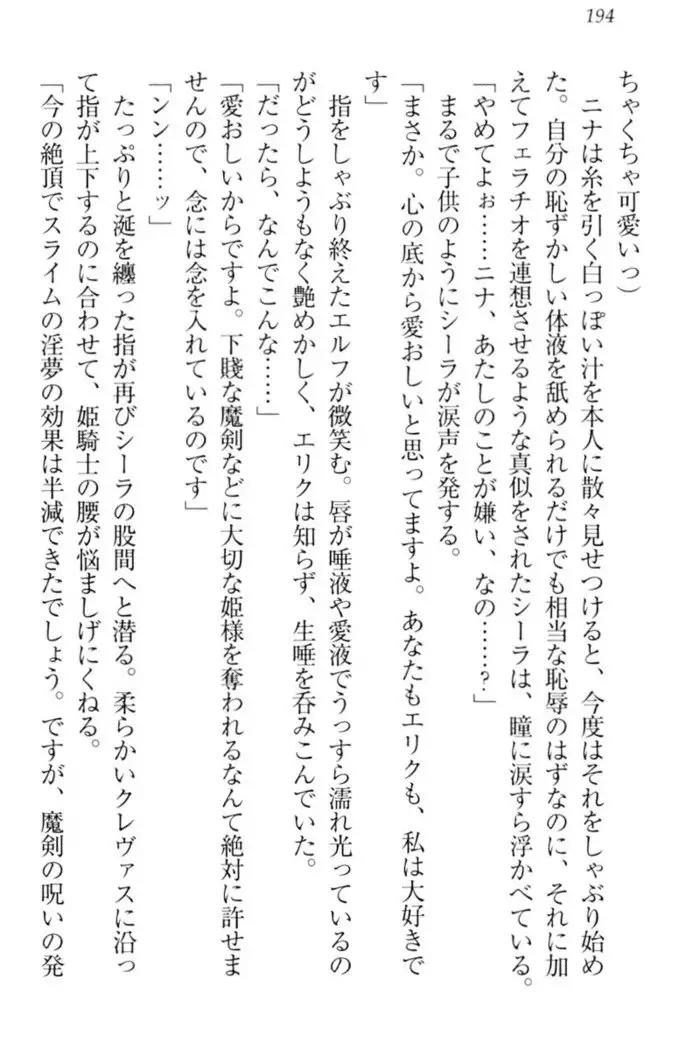 194
ちゃくちゃ可愛いっ）
　ニナは糸を引く白っぽい汁を本人に散々見せつけると、今度はそれをしゃぶり始め
た。自分の恥ずかしい体液を舐められるだけでも相当な恥辱のはずなのに、それに加
えてフェラチオを連想させるような真似をされたシーラは、瞳に涙すら浮かべている。
「やめてよぉ……ニナ、あたしのことが嫌い、なの……？」
　まるで子供のようにシーラが涙声を発する。
「まさか。心の底から愛おしいと思ってますよ。あなたもエリクも、私は大好きで
す」
　指をしゃぶり終えたエルフが微笑む。唇が唾液や愛液でうっすら濡れ光っているの
がどうしようもなく艶めかしく、エリクは知らず、生唾を呑みこんでいた。
「だったら、なんでこんな……」
「愛おしいからですよ。下賤な魔剣などに大切な姫様を奪われるなんて絶対に許せま
せんので、念には念を入れているのです」
「ンン……ッ」
　たっぷりと涎を纏った指が再びシーラの股間へと潜る。柔らかいクレヴァスに沿っ
て指が上下するのに合わせて、姫騎士の腰が悩ましげにくねる。
「今の絶頂でスライムの淫夢の効果は半減できたでしょう。ですが、魔剣の呪いの発